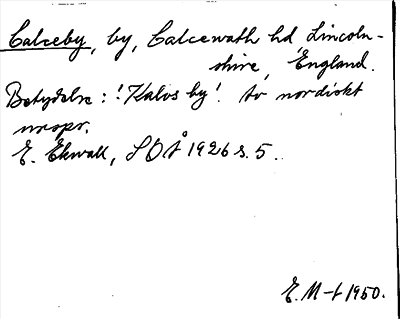 Calceby, by, Calcewath hd Lincoln-
shire, England.
Betydelse: 'Kalvs by'. Av nordiskt
urspr.
E. Ekwall, SOÅ 1926 s. 5.
E. M-t 1950.